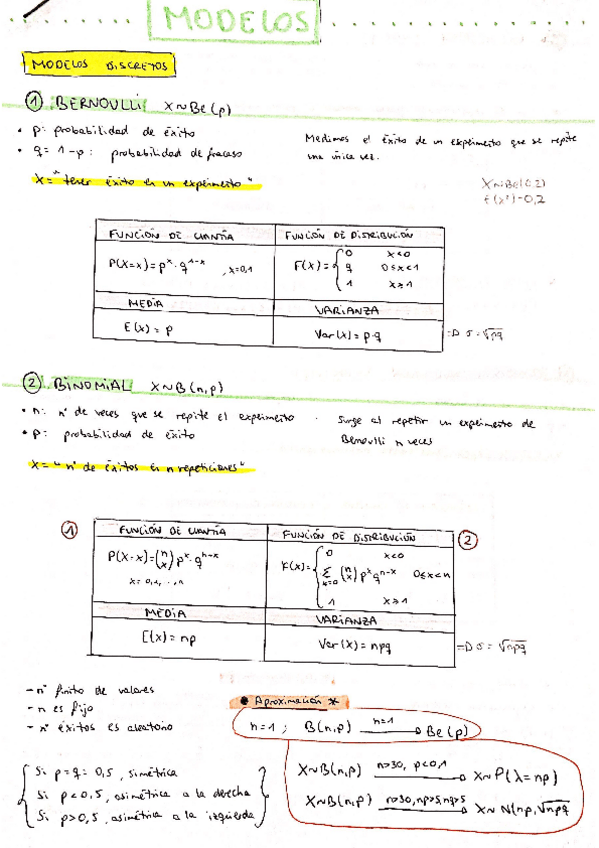 MODELOS
MODELOS DISCRETOS
① BERNOULLI X~Be(p)
• p: probabilidad de éxito
• q = 1-p: probabilidad de fracaso
Medimos el éxito de un experimento que se repite
una única vez.
X = "tener éxito en un experimento"
X~Be(0,2)
E(x²)=0,2
FUNCIÓN DE CUANTÍA
FUNCIÓN DE DISTRIBUCIÓN
P(X=x) = pˣ · q¹⁻ˣ , x=0,1
F(x) = { 0 x<0
q 0≤x<1
1 x≥1
MEDIA
VARIANZA
E(x) = p
Var(x) = p·q
=D σ = √pq
② BINOMIAL X~B(n,p)
• n: nº de veces que se repite el experimento
• p: probabilidad de éxito
· Surge al repetir un experimento de
Bernoulli n veces
X = "nº de éxitos en n repeticiones"
① FUNCIÓN DE CUANTÍA
FUNCIÓN DE DISTRIBUCIÓN ②
P(X=x) = (n x) pˣ · qⁿ⁻ˣ
x = 0,1,...,n
F(x) = { 0 x<0
Σ x=0 (n x) pˣ qⁿ⁻ˣ 0≤x<n
1 x≥1
MEDIA
VARIANZA
E(x) = np
Var(x) = npq
=D σ = √npq
- nº finito de valores
- n es fijo
- nº éxitos es aleatorio
• Aproximación *
n=1 ; B(n,p) n=1 → Be(p)
X~B(n,p) n>30, p<0,1 → X~P(λ=np)
X~B(n,p) n>30, np>5, nq>5 → X~N(np, √npq
{ Si p=q=0,5, simétrica
Si p<0,5, asimétrica a la derecha
Si p>0,5, asimétrica a la izquierda }